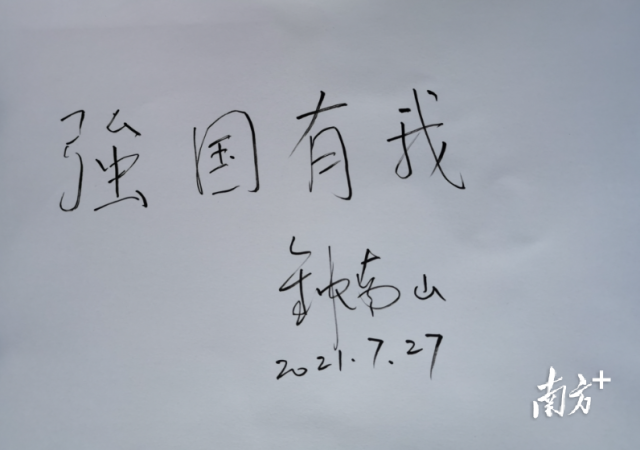 強国有我
钟南山
2021.7.27
南方+